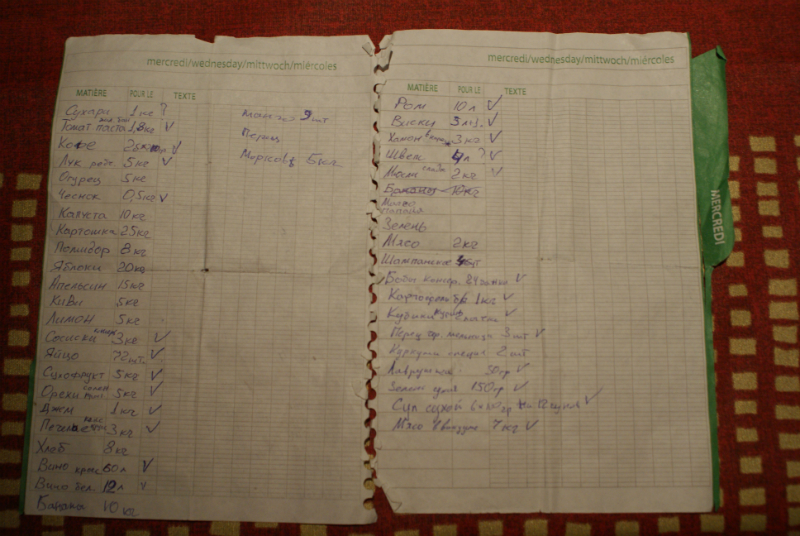 mercredi/wednesday/mittwoch/miércoles
MATIÈRE POUR LE TEXTE
Сухари 1 кг ?
Томат паста 1,8 кг V
Кофе V
Лук репч. 5 кг V
Огурец 5 кг
Чеснок 0,5 кг V
Капуста 10 кг
Картошка 25 кг
Помидор 8 кг
Яблоки 20 кг
Апельсин 15 кг
Киви 5 кг
Лимон 5 кг
Сосиски 3 кг V
Яйцо 72 шт. V
Сухофрукт 5 кг V
Орехи 5 кг V
Джем 1 кг V
Печенье 3 кг V
Хлеб 8 кг
Вино крас 60 л V
Вино бел. 12 л V
Банана 10 кг
манго 9 шт
Перец
Морковь 5 кг
mercredi/wednesday/mittwoch/miércoles
MATIÈRE POUR LE TEXTE
Ром 10 л V
Виски 3 л V
Хамон 3 кг V
Швепс 4 л ? V
Масло слив 2 кг V
Бананы 10 кг
Масло
Зелень
Мясо 2 кг
Шампанское
Бобы консер. 24 банки V
1 кг V
Кубики V
Перец 3 шт V
специи 2 шт
Лаврушка 50 гр V
150 гр V
Суп сухой V
Мясо 7 кг V
MERCREDI